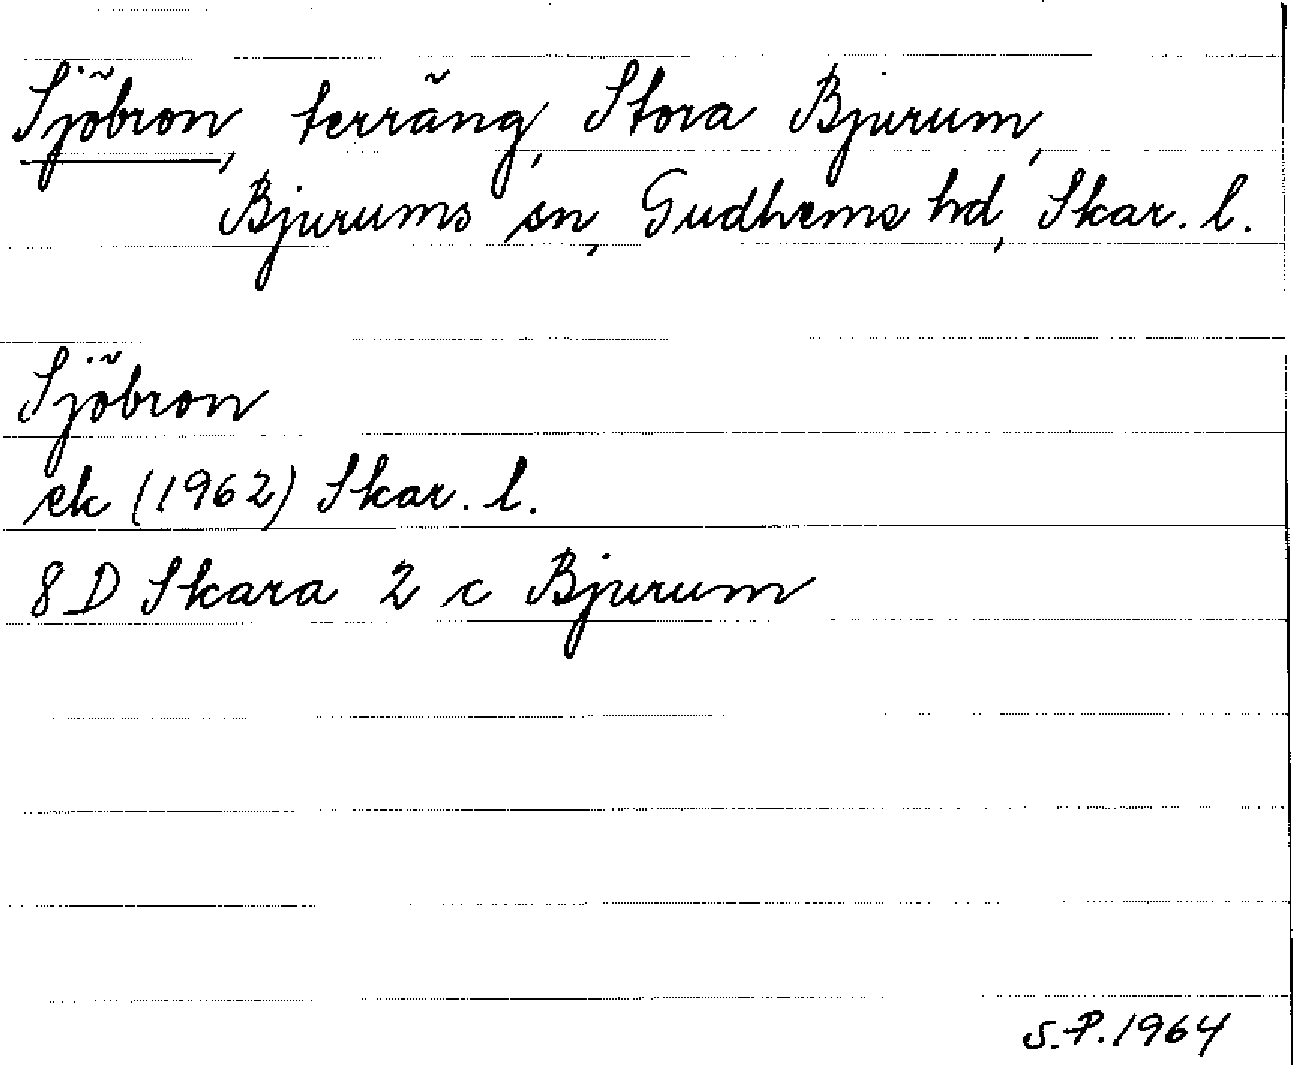 Sjöbron, terräng, Stora Bjurum,
Bjurums sn, Gudhems hd, Skar. l.
Sjöbron
ek (1962) Skar. l.
8 D Skara 2 c Bjurum
S.P. 1964